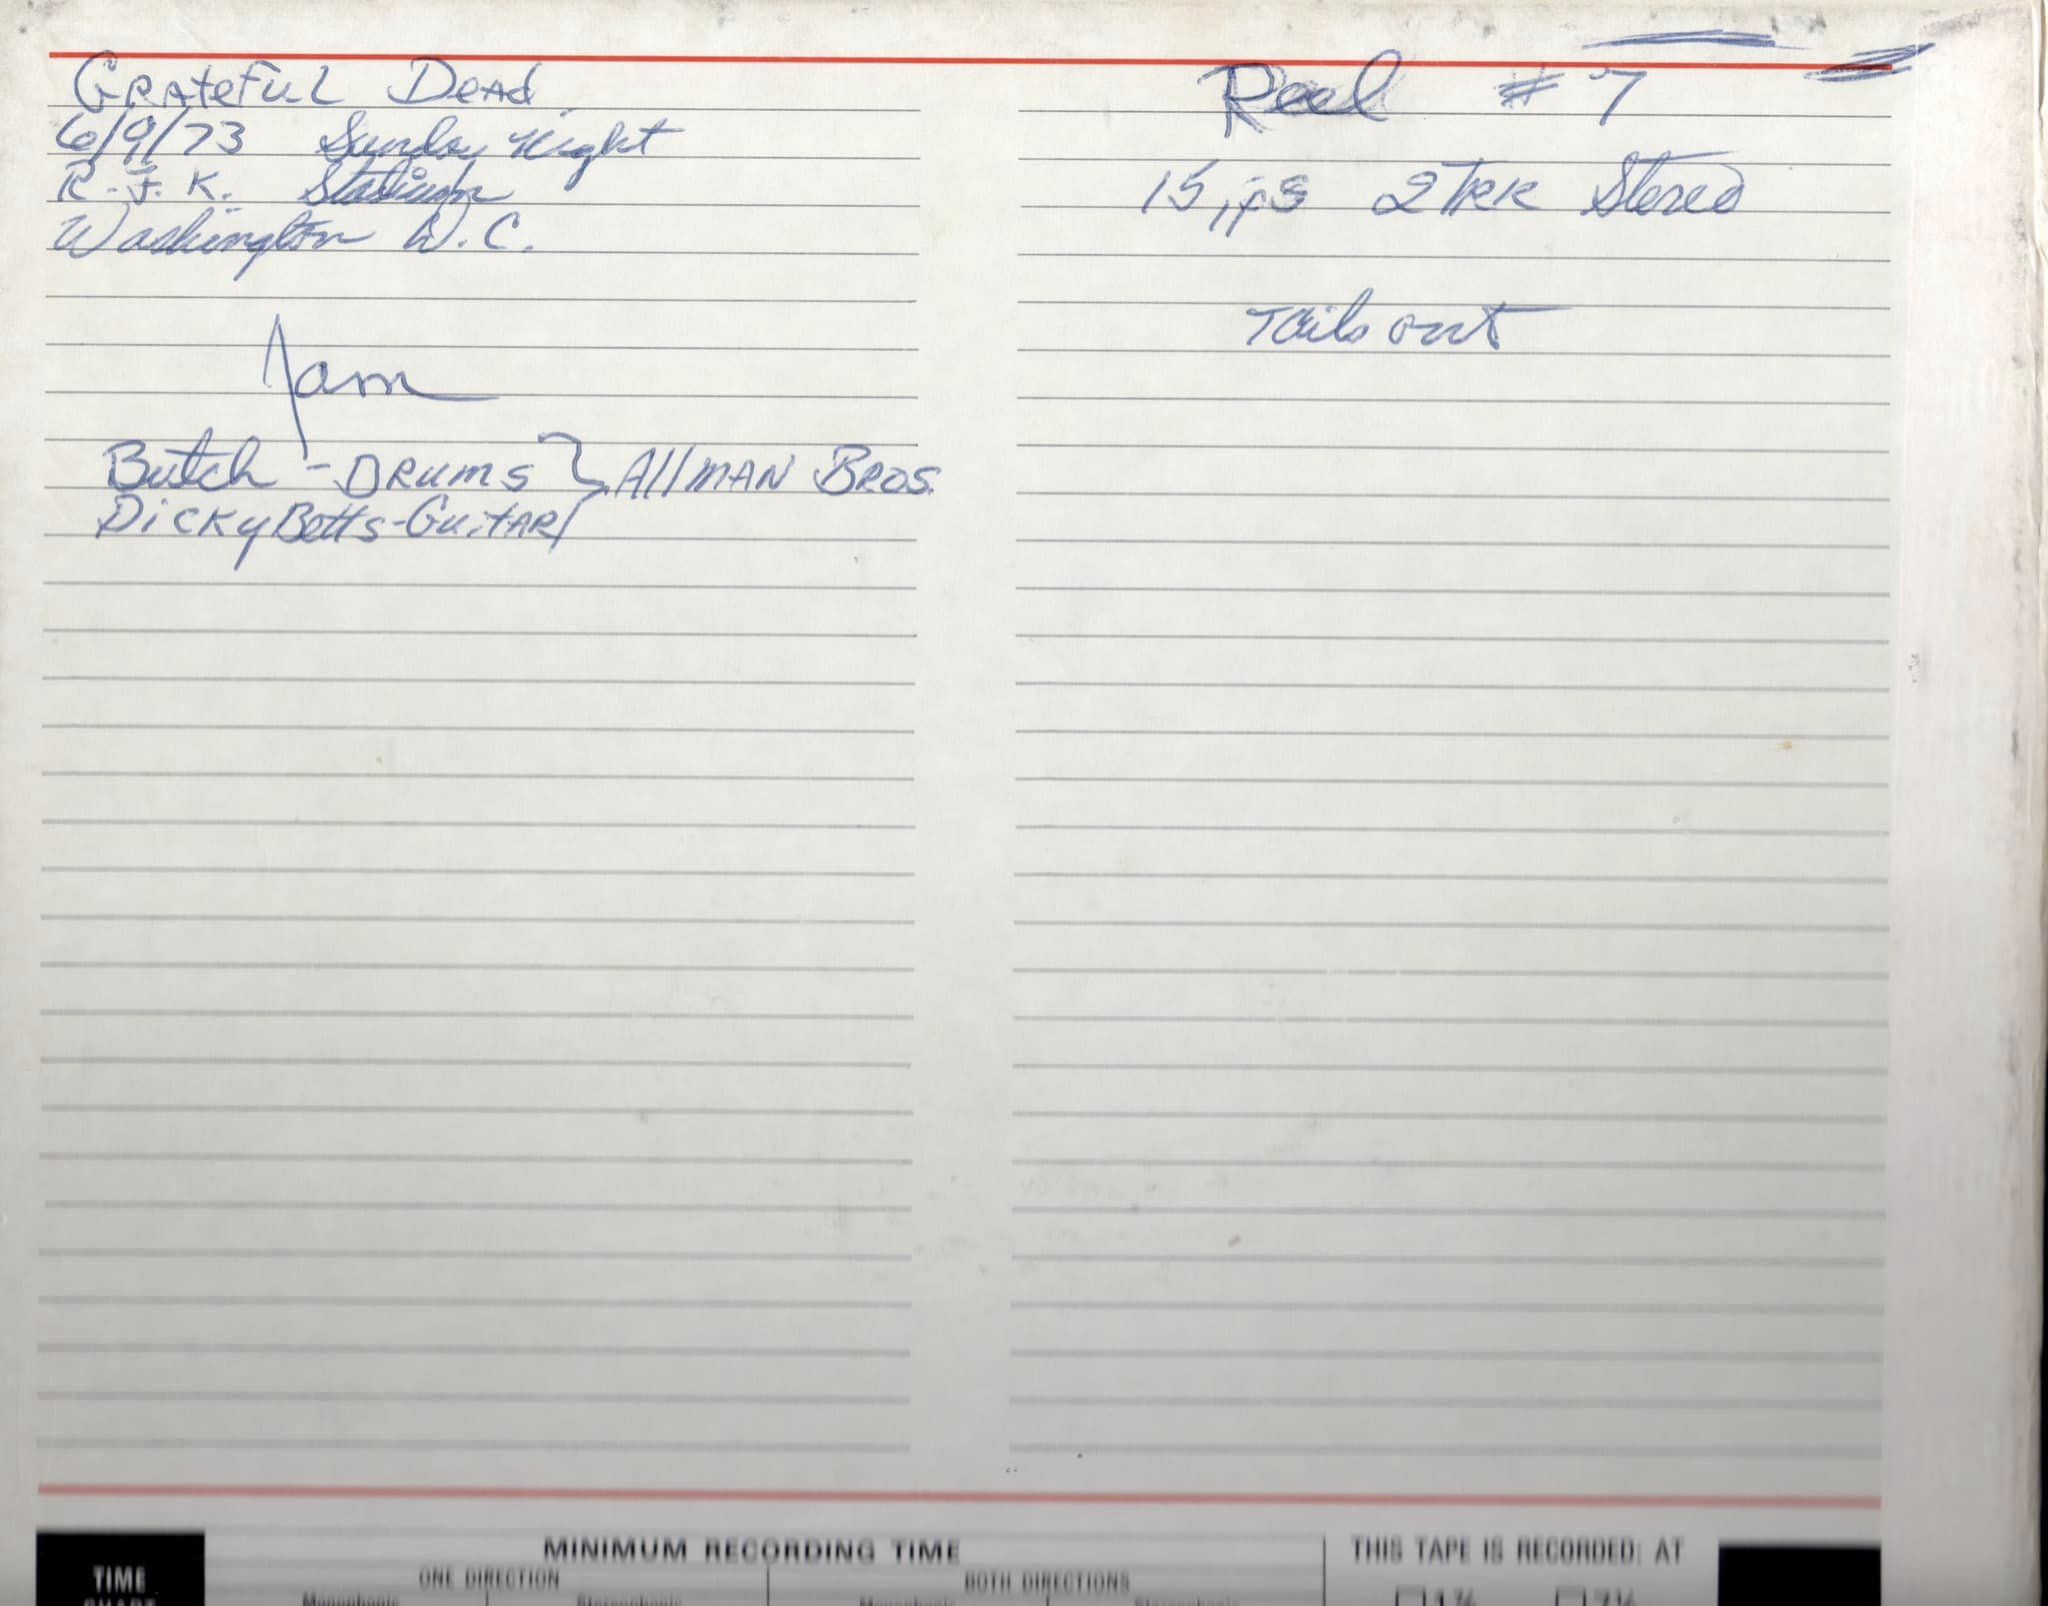 Grateful Dead
6/9/73 Sunday Night
R.F.K. Stadium
Washington D.C.
Jam
Butch - Drums } Allman Bros.
Dicky Betts - Guitar
Reel #7
15 ips 2TRK Stereo
Tails out
MINIMUM RECORDING TIME
ONE DIRECTION
BOTH DIRECTIONS
Monophonic Stereophonic Monophonic Stereophonic
THIS TAPE IS RECORDED: AT
TIME
CHART